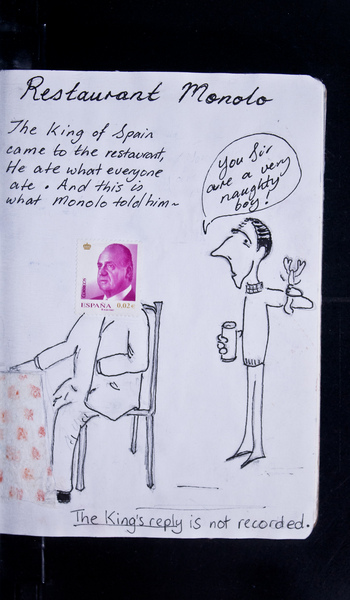 Restaurant Monolo
The King of Spain
came to the restaurant,
He ate what everyone
ate. And this is
what Monolo told him~
you Sir
are a very
naughty
boy!
ESPAÑA 0,02€
The King's reply is not recorded.